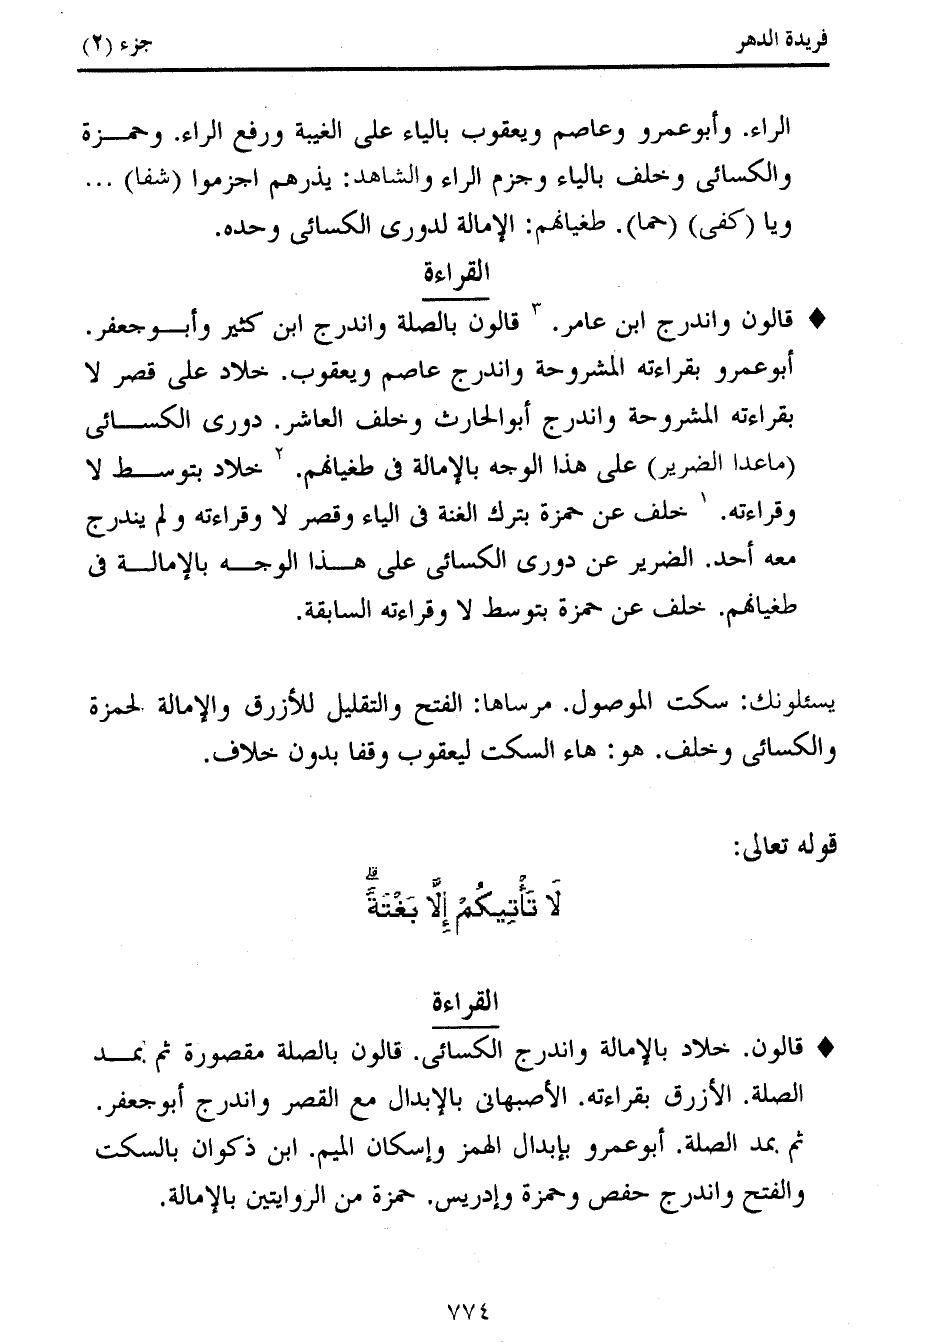 فريدة الدهر
جزء (٢)
الراء. وأبوعمرو وعاصم ويعقوب بالياء على الغيبة ورفع الراء. وحمـــزة
والكسائى وخلف بالياء وجزم الراء والشاهد: يذرهم اجزموا (شفا) ...
ويا (كفى) (حما). طغيانهم: الإمالة لدورى الكسائى وحده.
القراءة
♦ قالون واندرج ابن عامر. ٣ قالون بالصلة واندرج ابن كثير وأبـــوجعفر.
أبوعمرو بقراءته المشروحة واندرج عاصم ويعقوب. خلاد على قصر لا
بقراءته المشروحة واندرج أبوالحارث وخلف العاشر. دورى الكســـائى
(ماعدا الضرير) على هذا الوجه بالإمالة فى طغيانهم. ٢ خلاد بتوســـط لا
وقراءته. ١ خلف عن حمزة بترك الغنة فى الياء وقصر لا وقراءته ولم يندرج
معه أحد. الضرير عن دورى الكسائى على هـــذا الوجـــه بالإمالـــة فى
طغيانهم. خلف عن حمزة بتوسط لا وقراءته السابقة.
يسئلونك: سكت الموصول. مرساها: الفتح والتقليل للأزرق والإمالة لحمزة
والكسائى وخلف. هو: هاء السكت ليعقوب وقفا بدون خلاف.
قوله تعالى:
لَا تَأْتِيكُمْ إِلَّا بَغْتَةً ۗ
القراءة
♦ قالون. خلاد بالإمالة واندرج الكسائى. قالون بالصلة مقصورة ثم بمـــد
الصلة. الأزرق بقراءته. الأصبهانى بالإبدال مع القصر واندرج أبوجعفر.
ثم بمد الصلة. أبوعمرو بإبدال الهمز وإسكان الميم. ابن ذكوان بالسكت
والفتح واندرج حفص وحمزة وإدريس. حمزة من الروايتين بالإمالة.
٧٧٤